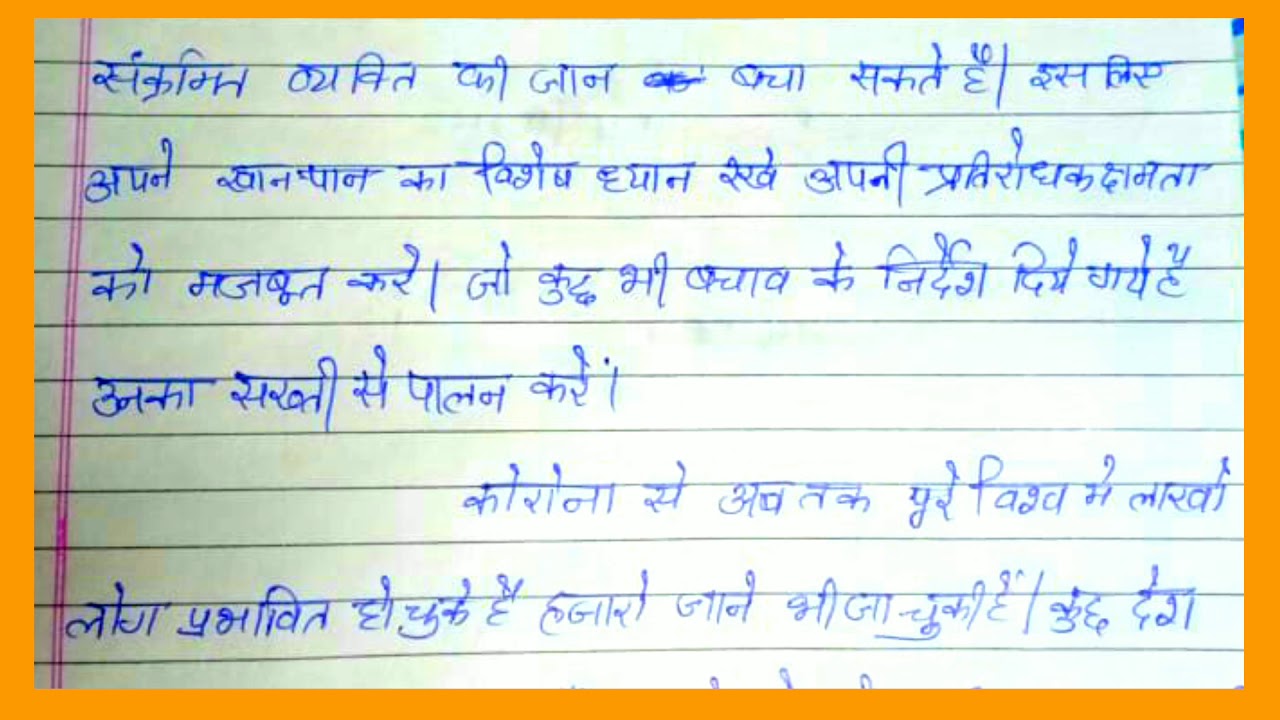 संक्रमित व्यक्ति की जान बचा सकते हैं। इस लिए
अपने खान-पान का विशेष ध्यान रखे अपनी प्रतिरोधक क्षमता
को मजबूत करे। जो कुछ भी बचाव के निर्देश दिये गये है
उनका सख्ती से पालन करें।
कोरोना से अब तक पूरे विश्व मे लाखो
लोग प्रभावित हो चुके है हजारो जाने भी जा चुकी हैं। कुछ देश